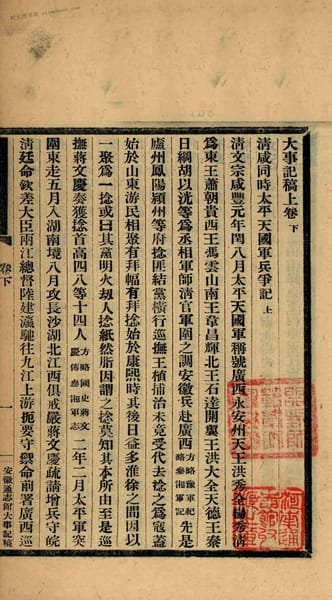 大事記稿上卷下
清咸同時太平天國軍兵爭記上
清文宗咸豐元年閏八月太平天國軍稱號廣西永安州天王洪秀全楊秀清
為東王蕭朝貴西王馮雲山南王韋昌輝北王石達開翼王洪大全天德王秦
日綱胡以洸等為丞相軍師清官軍圍之調安徽兵赴廣西方略豫軍紀略豫湘軍記先是
廬州鳳陽潁州等府捻匪結黨橫行巡撫王植捕治未竟受代去捻之為寇蓋
始於山東游民相聚有拜幅有拜捻始於康熙時其後日益多淮徐之間因以
一聚為一捻或曰其黨明火刼人捻紙然脂因謂之捻莫知其本所由至是巡
撫蔣文慶奏獲捻首高四八等十四人方略國史蔣文慶傳參湘軍志二年二月太平軍突
圍東走五月入湖南境八月攻長沙湖北江西俱戒嚴蔣文慶疏請增兵守皖
清廷命欽差大臣兩江總督陸建瀛馳往九江上游扼要守禦命前署廣西巡
卷下
一
安徽通志館大事記稿